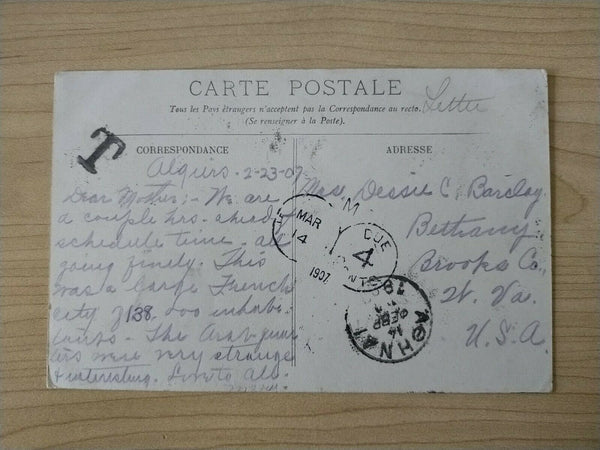 CARTE POSTALE
Tous les Pays étrangers n'acceptent pas la Correspondance au recto.
(Se renseigner à la Poste).
Letter
T
CORRESPONDANCE
Algiers - 2-23-07
Dear Mother; - We are
a couple hrs. ahead of
schedule time. all
going finely. This
was a large French
city of 138,000 inhabi-
tants. The Arab quar
ters were very strange
+ interesting. Love to all.
ADRESSE
Dessie C. Barclay
Bethany
Brooke Co.,
W. Va.
U.S.A.
MAR
14
1907
M
DUE
4
CENTS
ΑΘΗΝΑΙ
14
ΦΕΒΡ